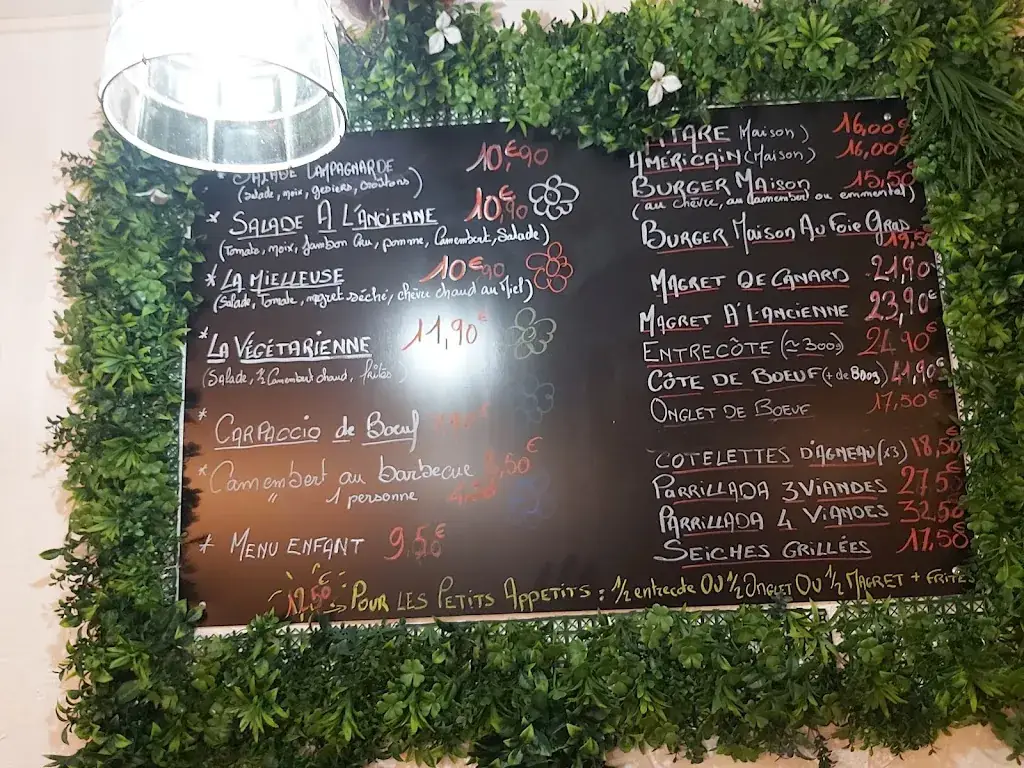 SALADE CAMPAGNARDE 10,€90
(Salade, noix, gesiers, croûtons)
* SALADE A L'ANCIENNE 10,€90
(Tomate, noix, Jambon Cru, pomme, Camembert, Salade)
* LA MIELLEUSE 10€90
(Salade, Tomate, magret séché, chèvre chaud au Miel)
* LA VÉGÉTARIENNE 11,90€
(Salade, ½ Camembert chaud, frites
* CARPACCIO de Bœuf
* Camembert au barbecue ,50€
" 1 personne 4,50
* MENU ENFANT 9,50€
TARE Maison) 16,00€
AMÉRICAIN (Maison) 16,00€
BURGER MAISON 15,50
(au chèvre, au camembert ou emmental)
BURGER MAISON AU FOIE GRAS 19,5
MAGRET DE CANARD 21,90
MAGRET À L'ANCIENNE 23,90€
ENTRECÔTE (≃ 300g) 24,90€
CÔTE DE BOEUF (+ de 800g) 41,90€
ONGLET DE BOEUF 17,50€
COTELETTES D'AGNEAU (x3) 18,50
PARRILLADA 3 VIANDES 27,5
PARRILLADA 4 VIANDES 32,50
SEICHES GRILLÉES 17,50
12,50€ POUR LES PETITS APPETITS : ½ entrecôte OU ½ ONGLET OU ½ MAGRET + FRITES